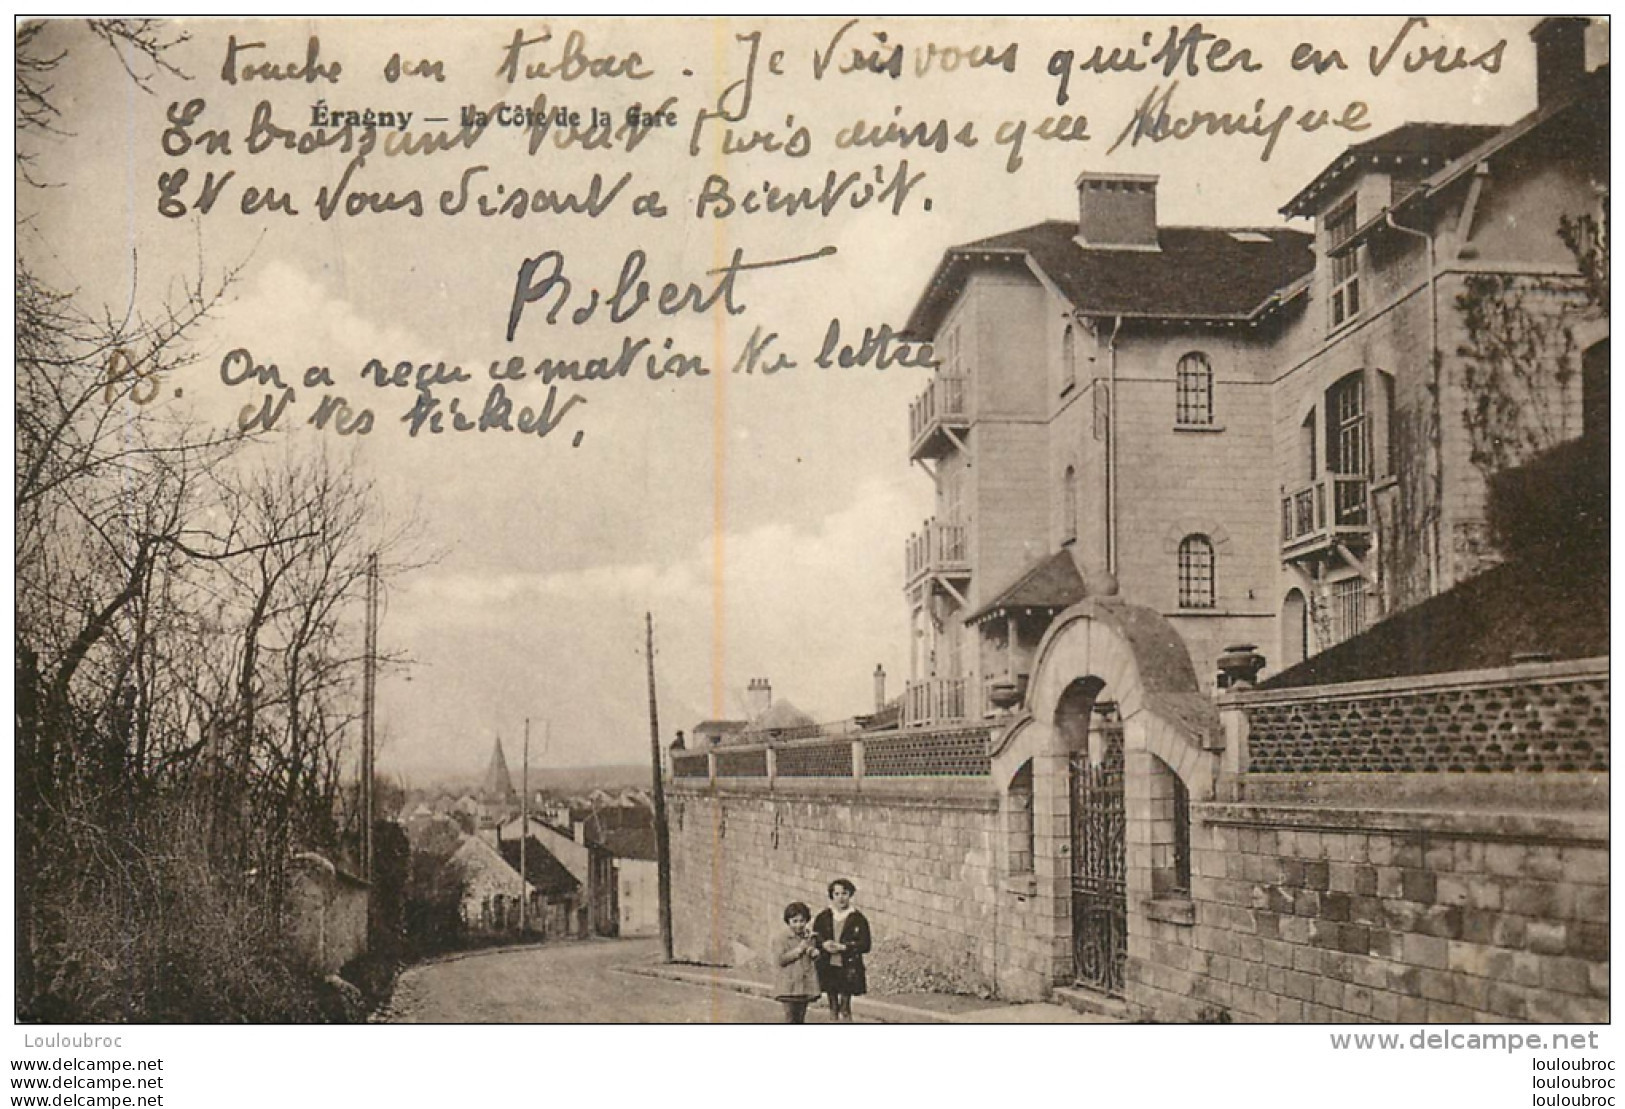 touche son tabac. Je vais vous quitter en vous
Éragny — La Côte de la Gare
Enbrassant tout trois ainsi que Monique
Et en vous disant a Bientôt.
Robert
PS. On a reçu ce matin ta lettre
et tes ticket.
Louloubroc
www.delcampe.net
www.delcampe.net louloubroc
www.delcampe.net louloubroc
www.delcampe.net louloubroc